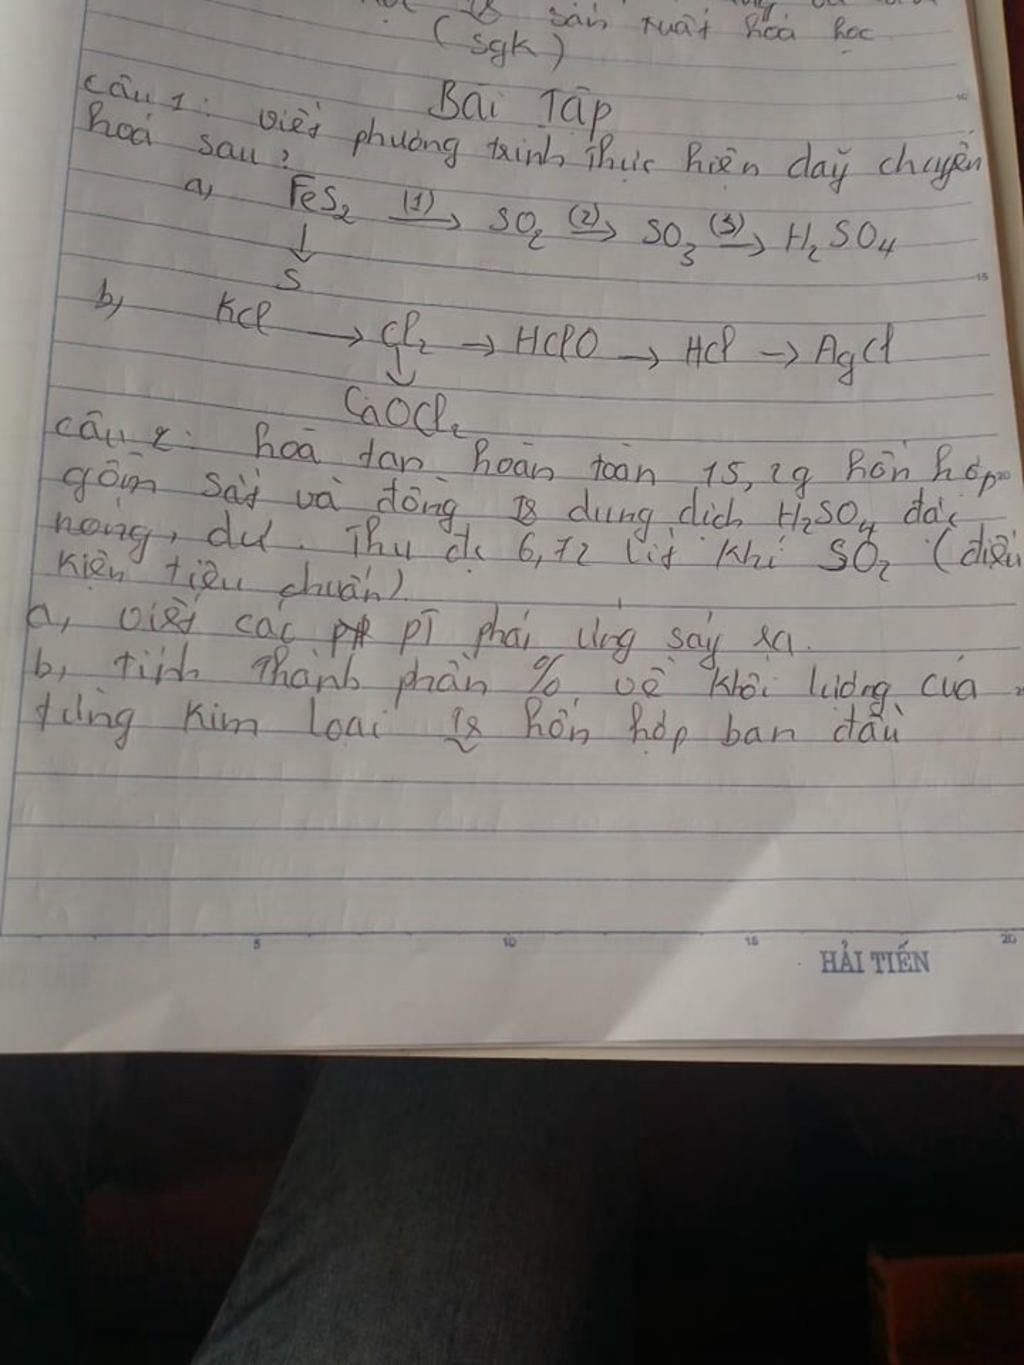 sản xuất hoá học
(sgk)
Bài Tập
câu 1: viết phương trình thực hiện dãy chuyển
hoá sau:
a, FeS2 (1)→ SO2 (2)→ SO3 (3)→ H2SO4
↓
S
b, KCl → Cl2 → HClO → HCl → AgCl
↓
CaOCl2
câu 2: hoà tan hoàn toàn 15,2g hỗn hợp
gồm sắt và đồng = dung dịch H2SO4 đặc
nóng, dư. Thu đc 6,72 lít khí SO2 (điều
kiện tiêu chuẩn).
a, viết các pT phải ứng sảy ra.
b, tính thành phần % về khối lượng của
từng kim loại hỗn hợp ban đầu
5 10 15 20
HẢI TIẾN